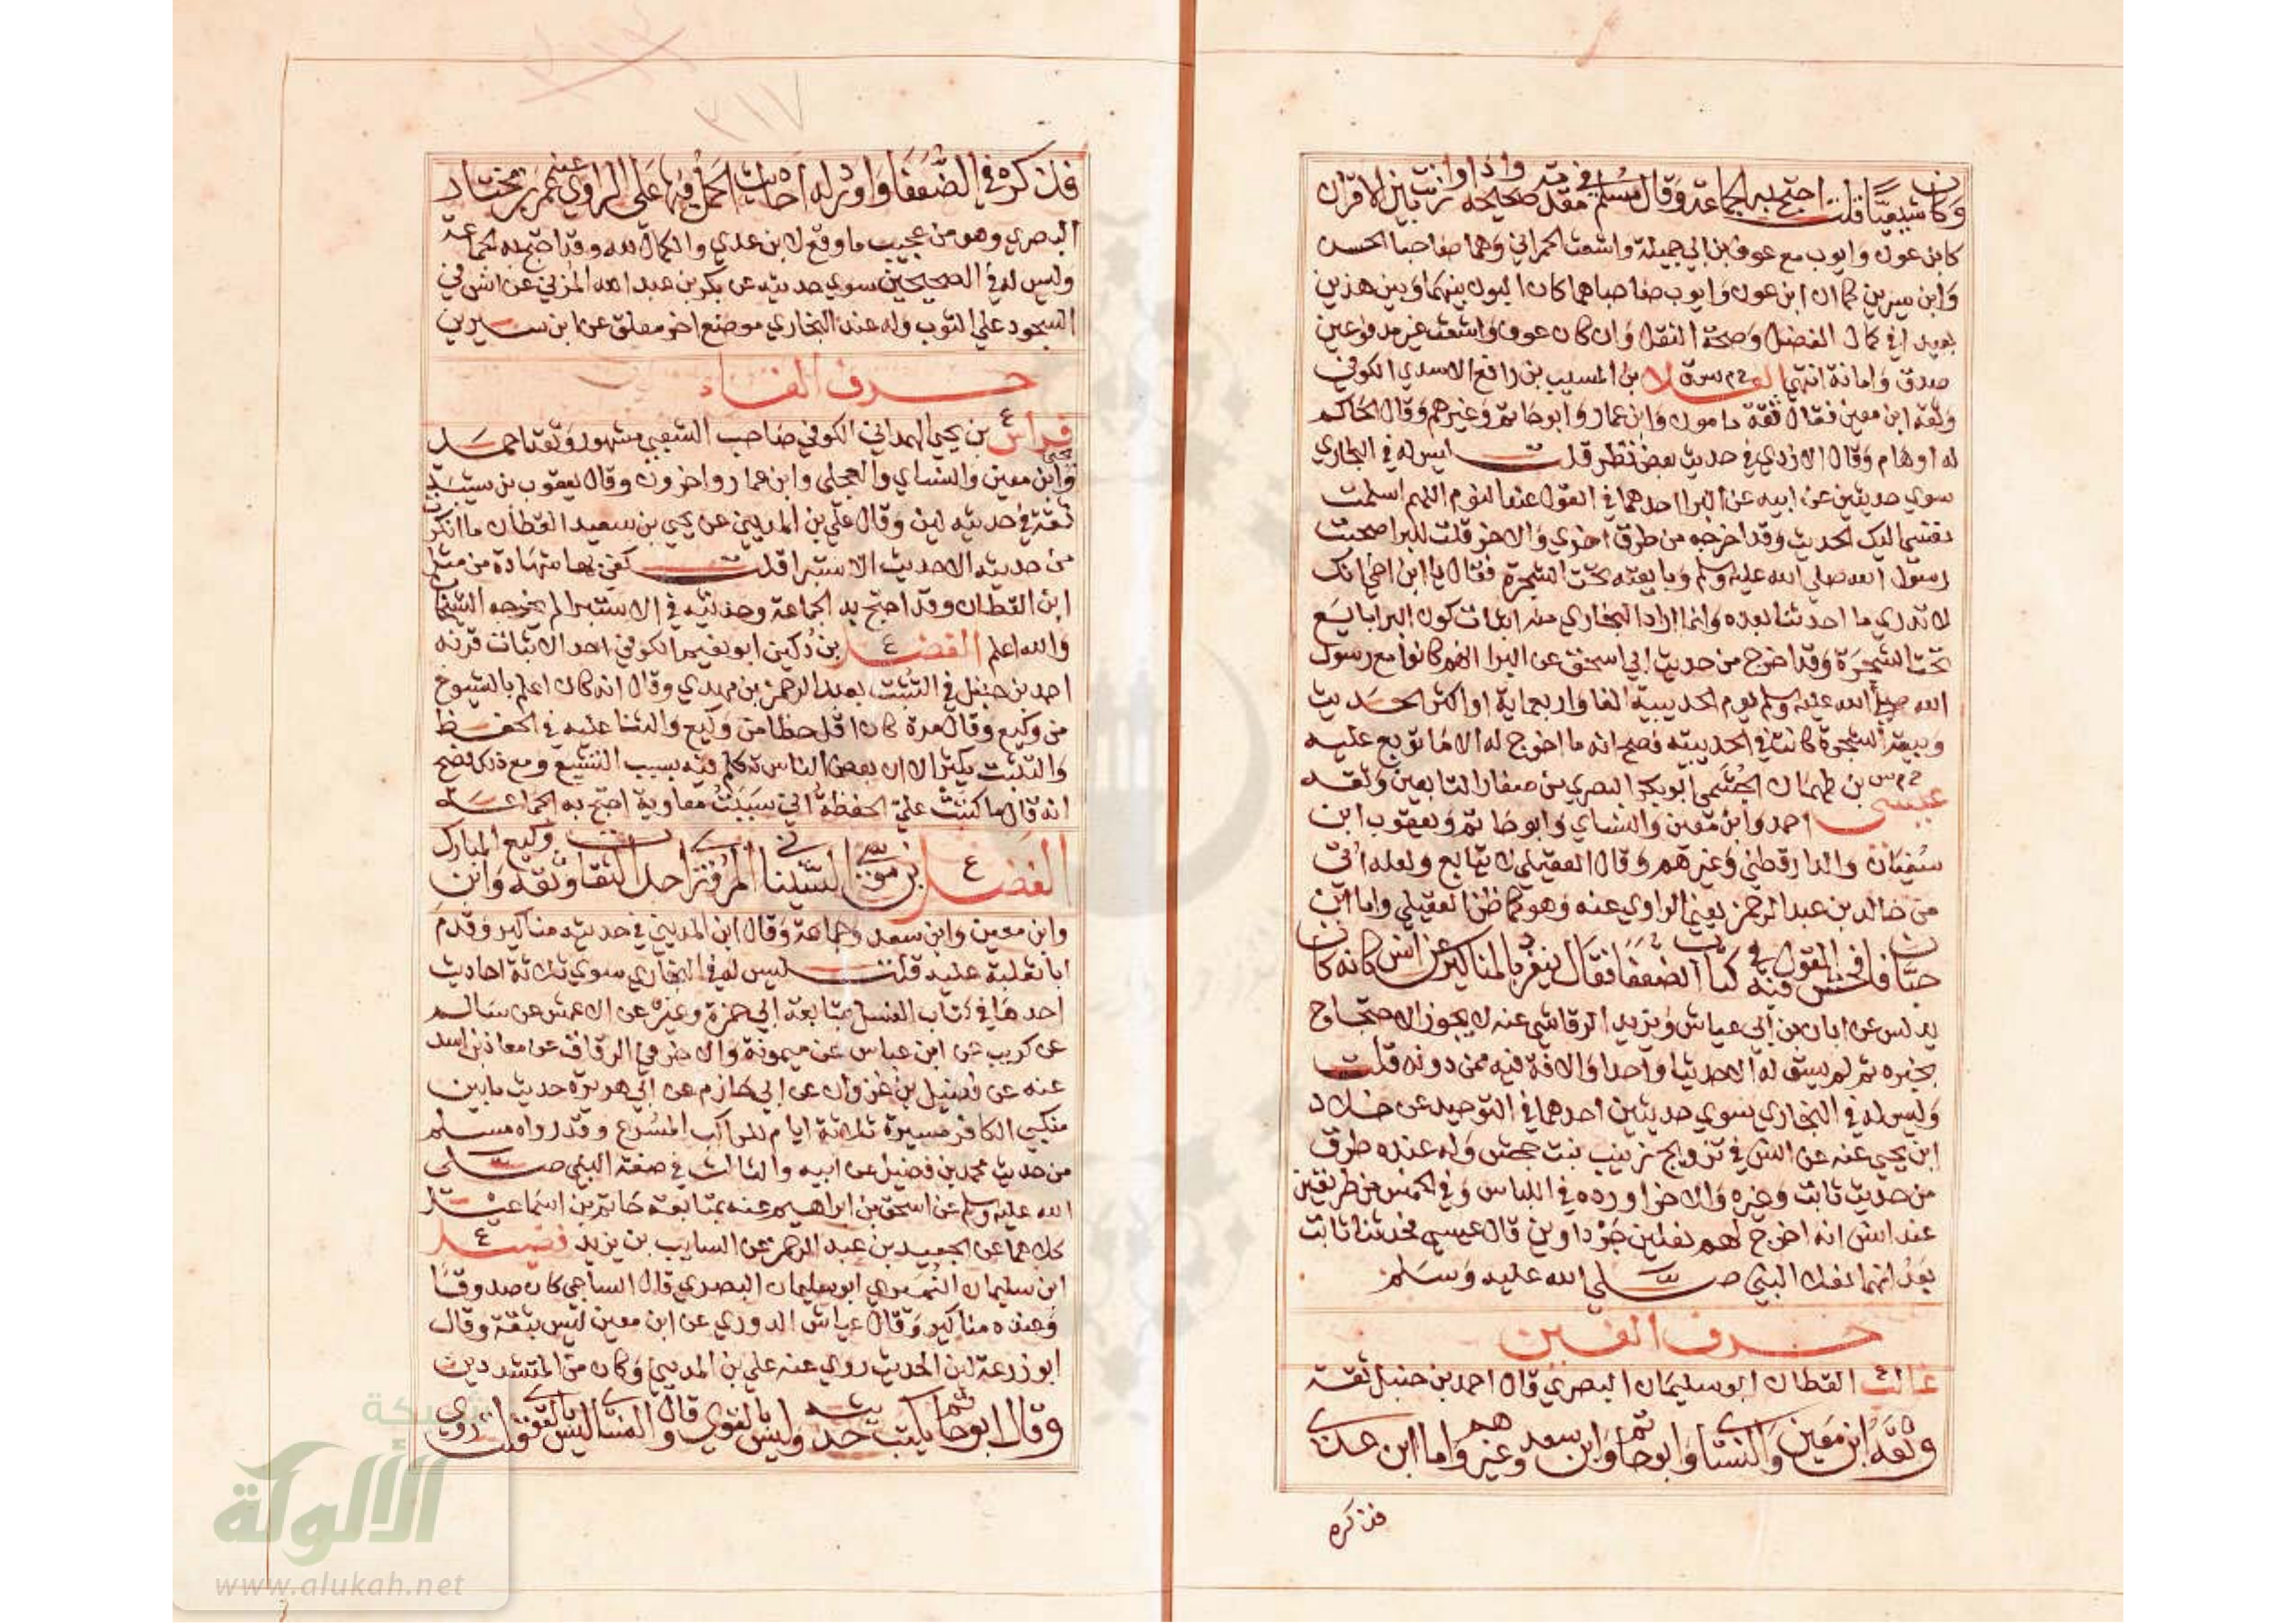 وكان شيعيا قلت احتج به الجماعة وقال مسلم في مقدمة صحيحه واذا وازنت بين الاقران
كابن عون وايوب مع عوف بن ابي جميلة واشعث الحمراني وهما صاحبا الحسن
وابن سيرين كما ان ابن عون وايوب صاحباهما كان البون بينهما وبين هذين
بعيدا في كمال الفضل وصحة النقل وان كان عوف واشعث غير مدفوعين
صدق وامانة انتهى العلا خ م س ق بن المسيب بن رافع الاسدي الكوفي
وثقه ابن معين فقال ثقة مامون وابن عمار وابو حاتم وغيرهم وقال الحاكم
له اوهام وقال الازدي في حديثه بعض نظر قلت ليس له في البخاري
سوي حديثين عن ابيه عن البرا احدهما في القول عند النوم اللهم اسلمت
نفسي اليك الحديث وقد اخرجه من طرق اخري والاخر قلت للبرا صحبت
رسول الله صلي الله عليه وسلم وبايعته تحت الشجرة فقال يا ابن اخي انك
لا تدري ما احدثنا بعده وانما اراد البخاري منه اثبات كون البرا بايع
تحت الشجرة وقد اخرج من حديث ابي اسحق عن البرا انهم كانوا مع رسول
الله صلي الله عليه وسلم يوم الحديبية الفا واربعماية او اكثر الحديث
وبيعة الشجرة كانت في الحديبية فصح انه ما اخرج له الا ما توبع عليه
عيسي خ م س بن طهمان الجشمي ابو بكر البصري من صغار التابعين وثقه
احمد وابن معين والنساي وابو حاتم ويعقوب ابن
سفيان والدارقطني وغيرهم وقال العقيلي لا يتابع ولعله اتي
من خالد بن عبد الرحمن يعني الراوي عنه وهو كما ظن العقيلي واما ابن
حبان فافحش القول فيه في كتاب الضعفا فقال ينفرد بالمناكير عن انس كانه كان
يدلس عن ابان بن ابي عياش ويزيد الرقاشي عنه لا يجوز الاحتجاج
بخبره ثم لم يسق له الا حديثا واحدا والافة فيه ممن دونه قلت
وليس له في البخاري سوي حديثين احدهما في التوحيد عن خلاد
ابن يحيي عنه عن انس في تزويج زينب بنت جحش وله عنده طرق
من حديث ثابت وغيره والاخر اورده في اللباس وفي الخمس من طريقين
عند انس انه اخرج لهم نعلين جرداوين قال عيسي فحدثنا ثابت
بعد انهما نعلا النبي صلي الله عليه وسلم
حرف الغين
غالب ع القطان ابو سليمان البصري قال احمد بن حنبل ثقة
وثقه ابن معين والنساي وابو حاتم وابن سعد وغيرهم واما ابن عدي
فذكره
٣١٧
فذكره في الضعفا واورد له احاديث الحمل فيها علي الراوي عنه عمر بن مختار
البصري وهو من عجيب ما وقع لابن عدي والكمال لله وقد احتج به الجماعة
وليس له في الصحيحين سوي حديثه عن بكر بن عبد الله المزني عن انس في
السجود علي الثوب وله عند البخاري موضع اخر معلق عن ابن سيرين
حرف الفاء
فراس ع بن يحيى الهمداني الكوفي صاحب الشعبي مشهور وثقه احمد
وابن معين والنساي والعجلي وابن عمار واخرون وقال يعقوب بن شيبة
ثقة في حديثه لين وقال علي بن المديني عن يحيي بن سعيد القطان ما انكرت
من حديثه الا حديث الاستبرا قلت كفي بها شهادة من مثل
ابن القطان وقد احتج به الجماعة وحديثه في الاستبرا لم يخرجه الشيخان
والله اعلم الفضل ع بن دكين ابو نعيم الكوفي احد الاثبات قرنه
احمد بن حنبل في التثبت بعبد الرحمن بن مهدي وقال انه كان اعلم بالشيوخ
من وكيع وقال مرة كان اقل خطا من وكيع والثنا عليه في الحفظ
والتثبت يكثر الا ان بعض الناس تكلم فيه بسبب التشيع ومع ذلك فصح
انه قال ما كتبت علي الحفظة اني سببت معاوية احتج به الجماعة
الفضل ع بن موسي السيناني المروزي احد الثقات وثقه وكيع وابن المبارك
وابن معين وابن سعد وجماعة وقال ابن المديني في حديثه مناكير وقدم
ابا ثميلة عليه قلت ليس له في البخاري سوي ثلاثة احاديث
احدها في كتاب الغسل بمتابعة ابي حمزة وغيره عن الاعمش عن سالم
عن كريب عن ابن عباس عن ميمونة والاخر في الرقاق عن معاذ بن اسد
عنه عن فضيل بن غزوان عن ابي حازم عن ابي هريرة حديث ما بين
منكبي الكافر مسيرة ثلاثة ايام للراكب المسرع وقد رواه مسلم
من حديث محمد بن فضيل عن ابيه والثالث في صفة النبي صلي
الله عليه وسلم عن اسحق بن ابراهيم عنه بمتابعة حاتم بن اسماعيل
كلاهما عن الجعيد بن عبد الرحمن عن السايب بن يزيد فضيل ع
ابن سليمان النميري ابو سليمان البصري قال الساجي كان صدوقا
وعنده مناكير وقال عباس الدوري عن ابن معين ليس بثقة وقال
ابو زرعة لين الحديث روي عنه علي بن المديني وكان من المتشددين
وقال ابو حاتم يكتب حديثه وليس بالقوي وقال النساي ليس بالقوي قلت روي
شبكة
الألوكة
www.alukah.net